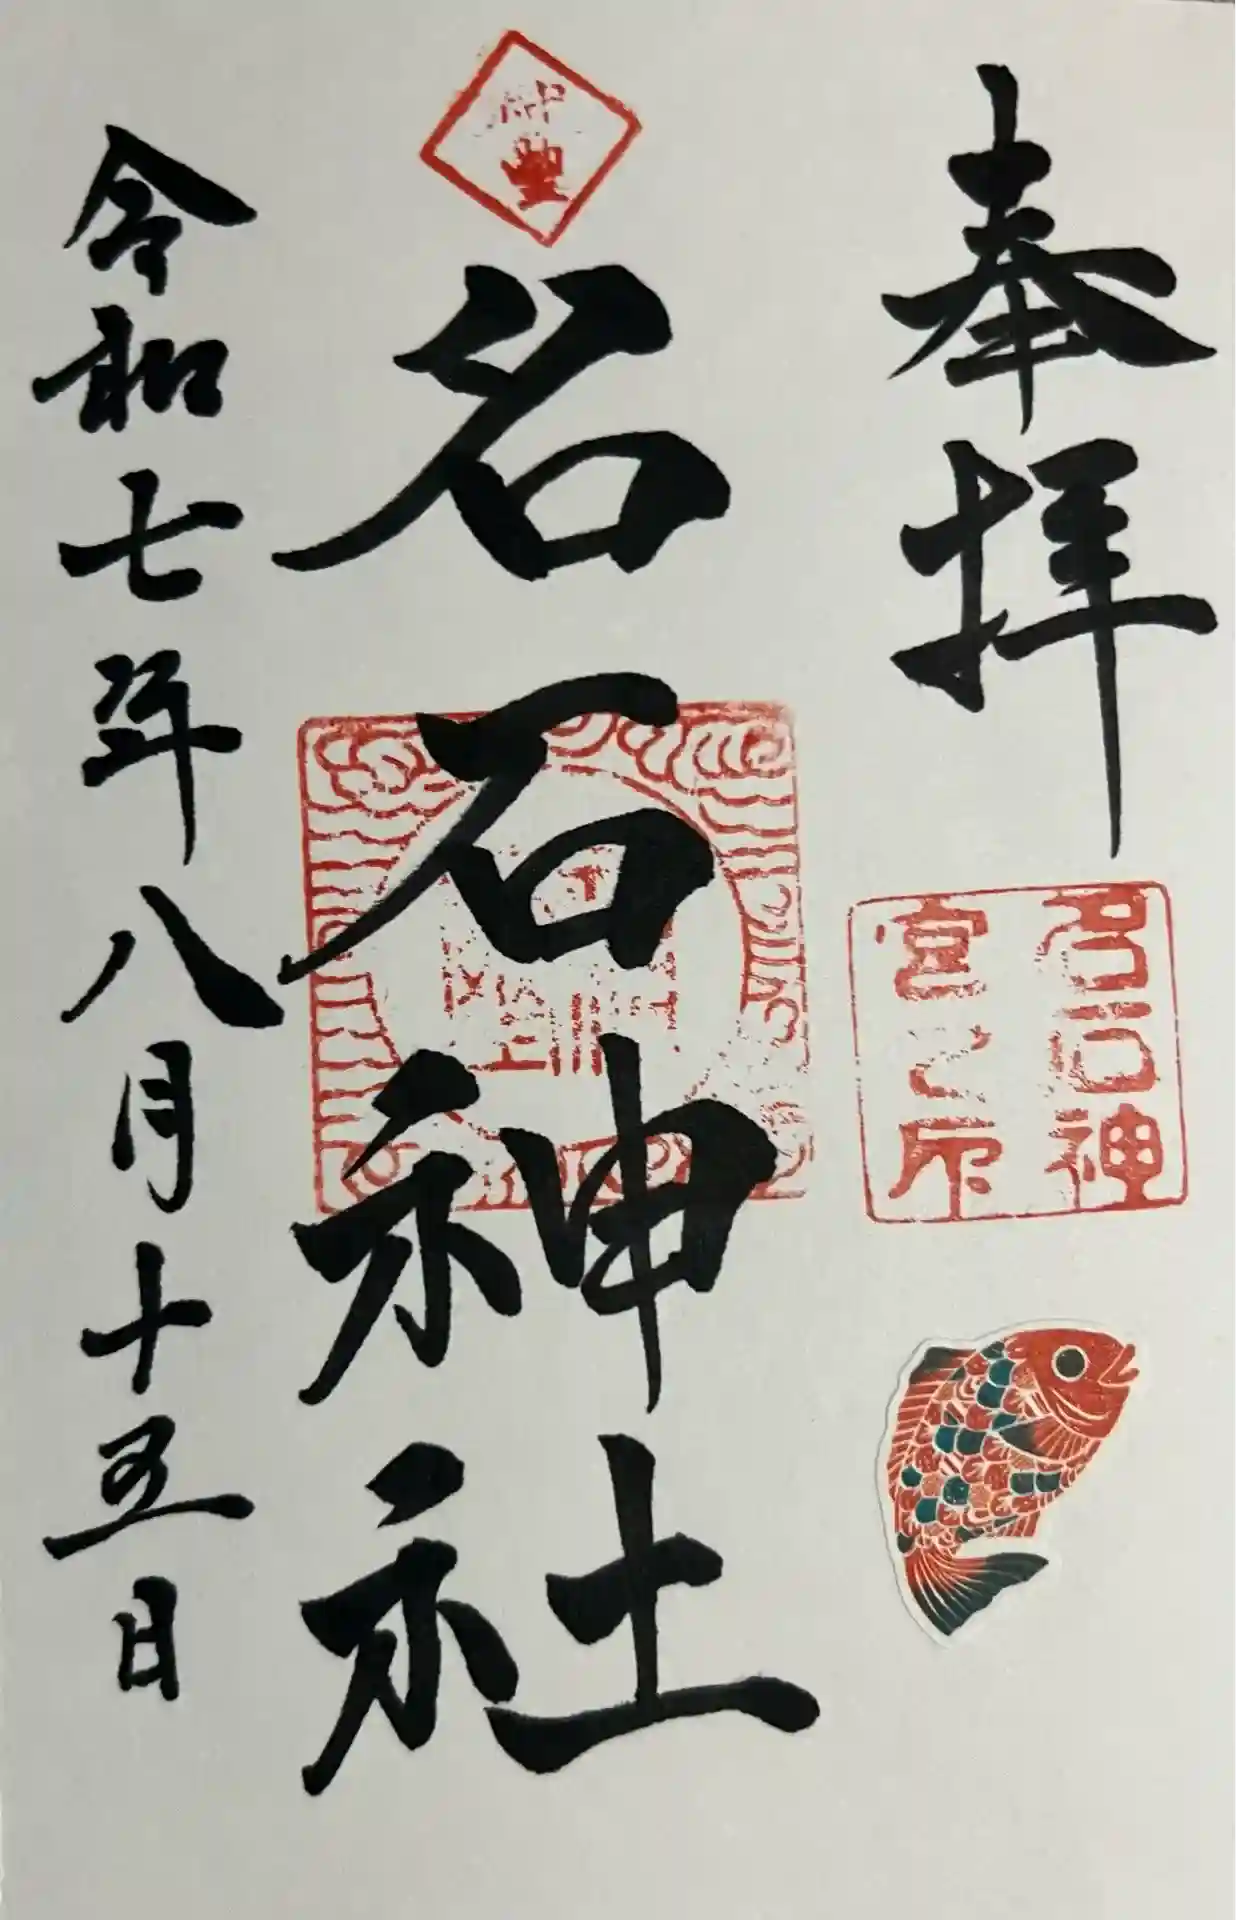 奉拝
名石神
宮之印
名石神社
令和七年八月十五日